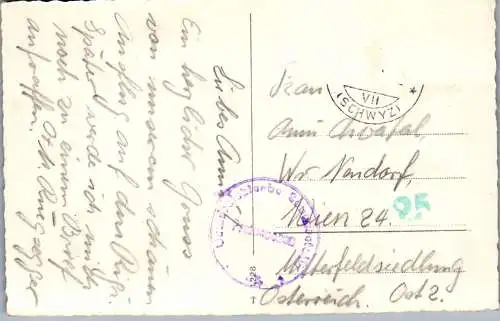 Liebes Anni!
Ein herzlicher Gruss
von unserem schönen
Ausflug auf den Rigi.
Später werde ich mich
noch zu einem Brief
aufraffen.
Frau
Anni
Wr. Neudorf,
Wien 24.
Mitterfeldsiedlung
Österreich. Ost 2.
VII
(SCHWYZ)
*
95
1228